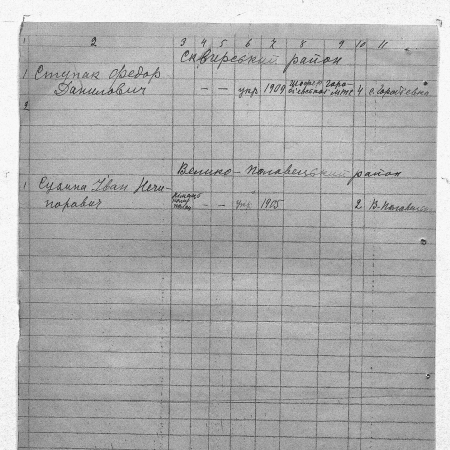 1 2 3 4 5 6 7 8 9 10 11
Сквирський район
1 Ступак Федор
Данилович — — укр 1909 МТС 4
2
Велико-Половецький район
1 Сухина Іван Ничи-
порович — — укр 1905 2